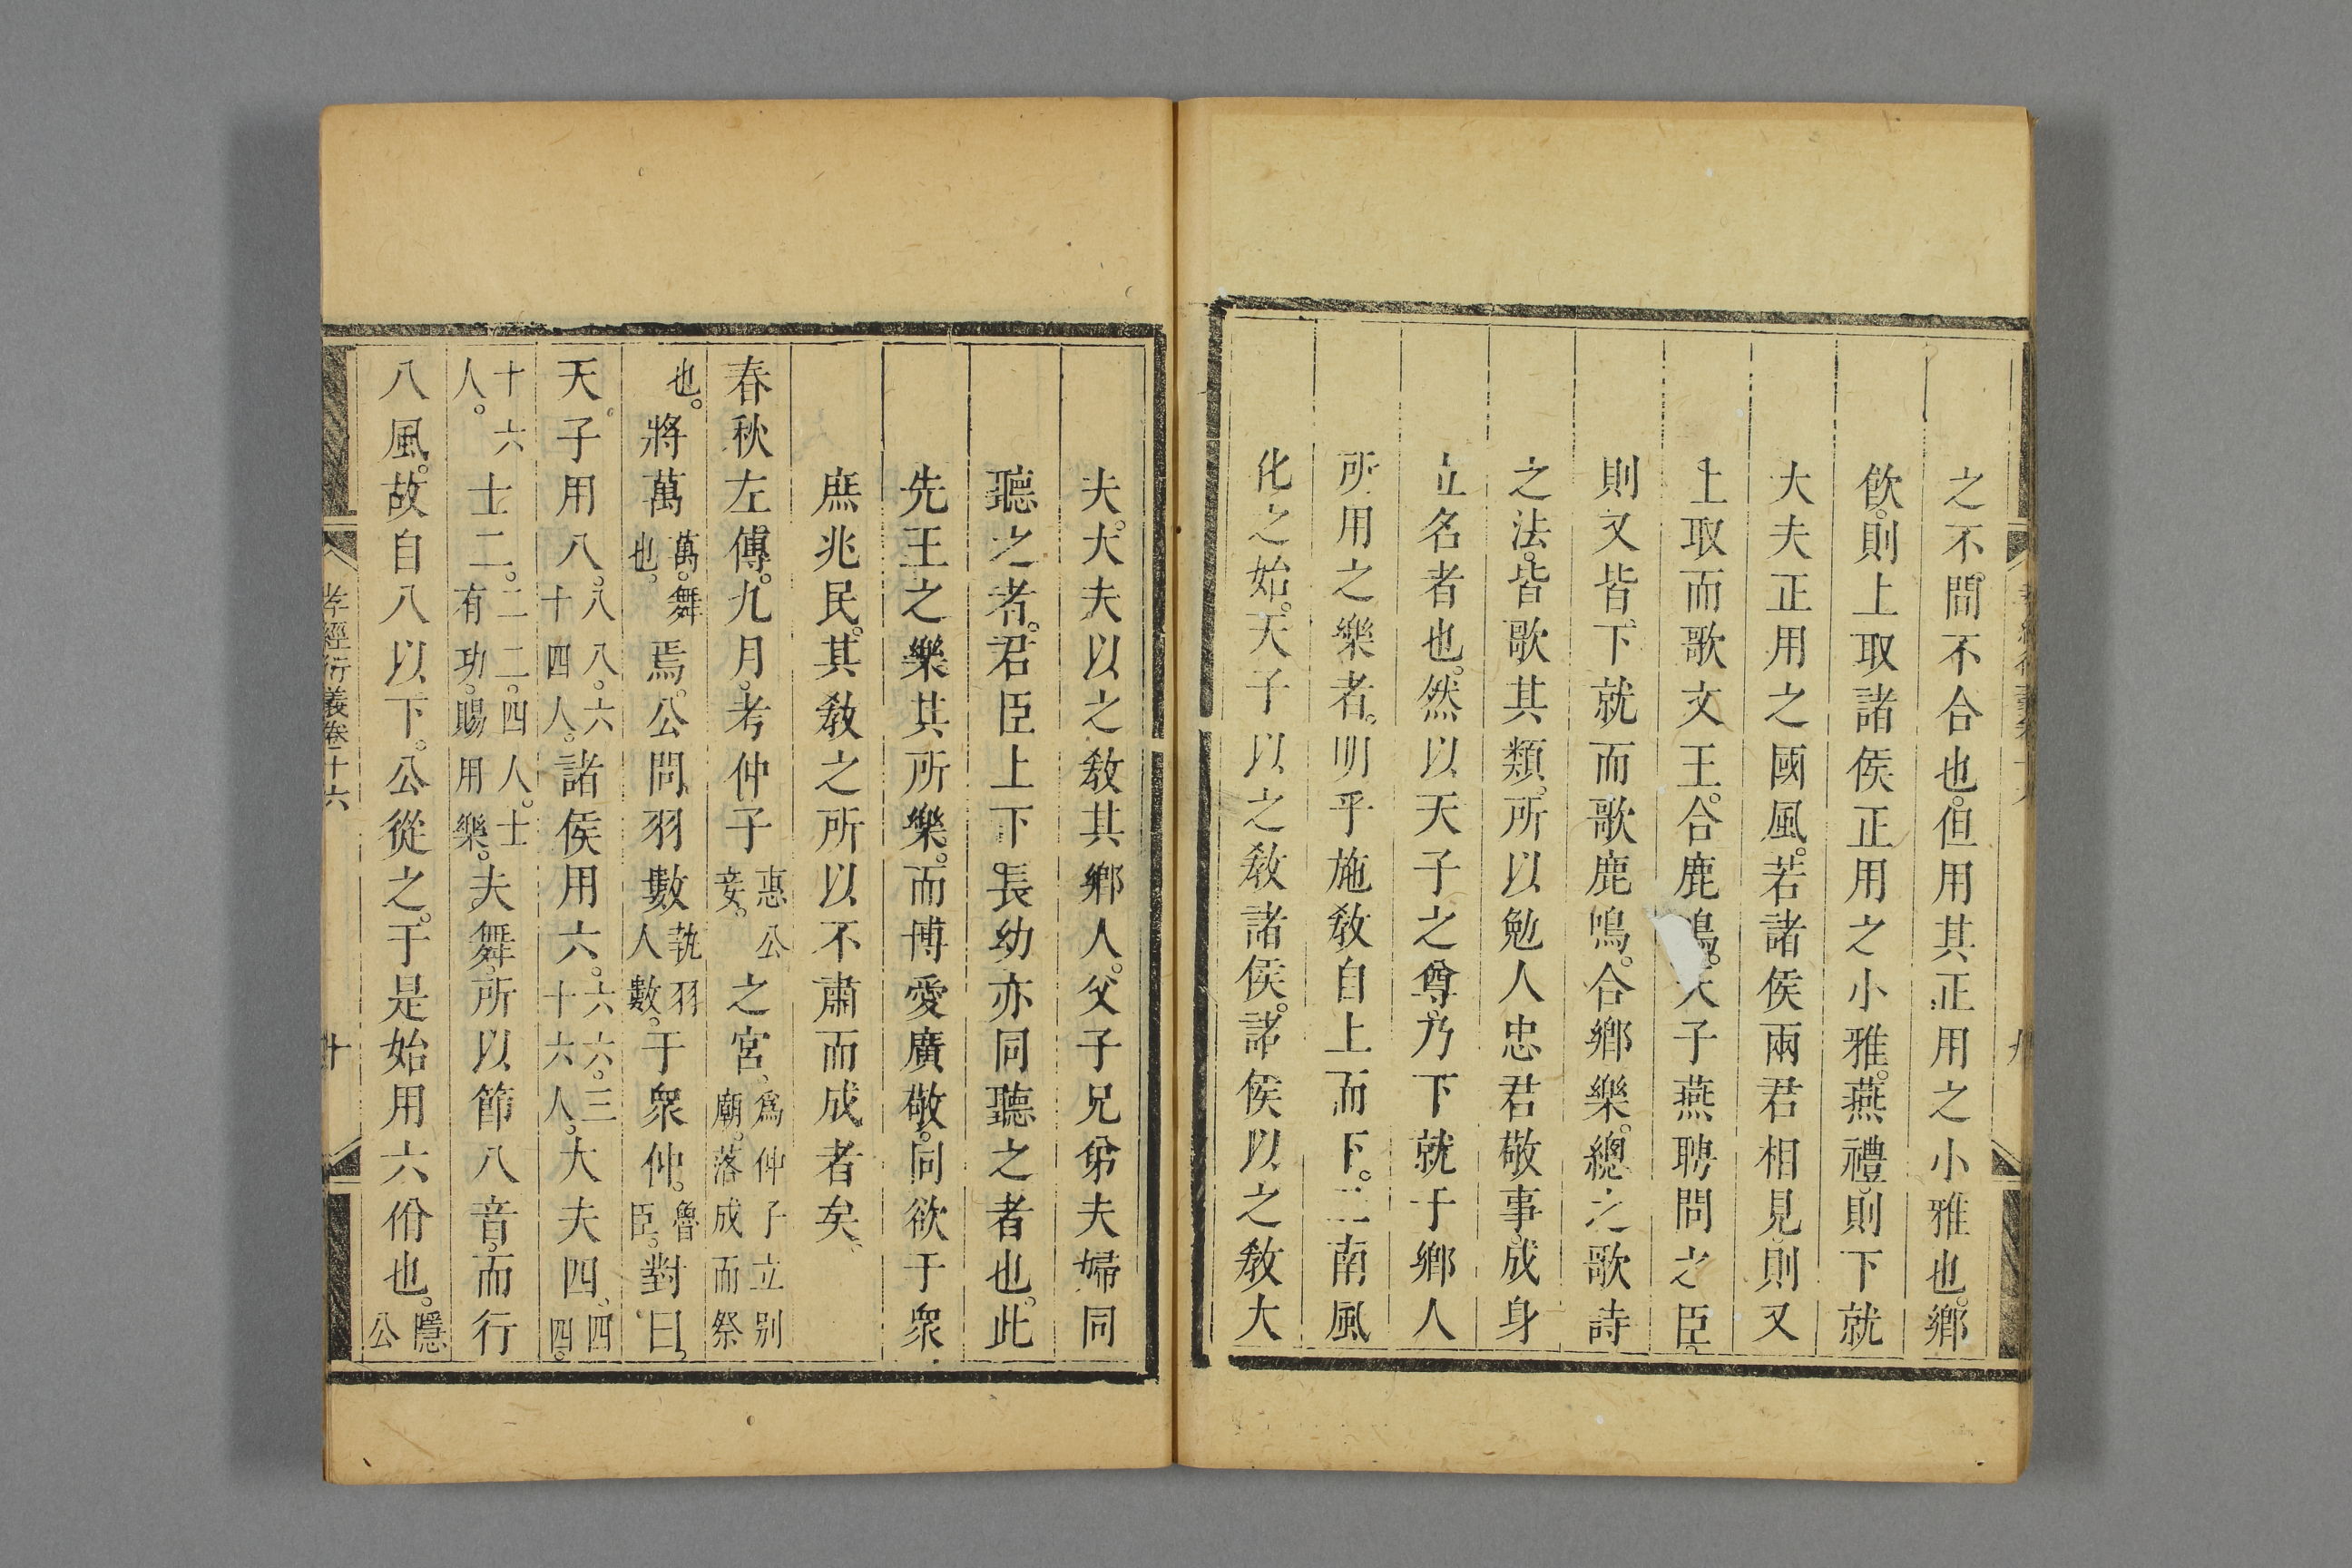 之不問不合也。但用其正用之小雅也。鄉
飲。則上取諸侯正用之小雅。燕禮。則下就
大夫正用之國風。若諸侯兩君相見。則又
上取而歌文王。合鹿鳴。天子燕聘問之臣。
則又皆下就而歌鹿鳴。合鄉樂。總之歌詩
之法。皆歌其類。所以勉人忠君敬事。成身
立名者也。然以天子之尊。乃下就于鄉人
所用之樂者。明乎施教自上而下。二南風
化之始。天子以之教諸侯。諸侯以之教大
夫。大夫以之教其鄉人。父子兄弟夫婦同
聽之者。君臣上下。長幼亦同聽之者也。此
先王之樂其所樂。而博愛廣敬。同欲于衆
庶兆民。其教之所以不肅而成者矣。
春秋左傳。九月。考仲子惠公妾。之宮、爲仲子立别廟。落成而祭
也。將萬萬。舞也。焉。公問羽數執羽人數。于衆仲。魯臣。對曰。
天子用八。八八。六十四人。諸侯用六。六六。三十六人。大夫四、四四。
十六人。士二。二二。四人。士有功。賜用樂。夫舞。所以節八音。而行
八風。故自八以下。公從之。于是始用六佾也。隱公
孝經衍義卷十六
十